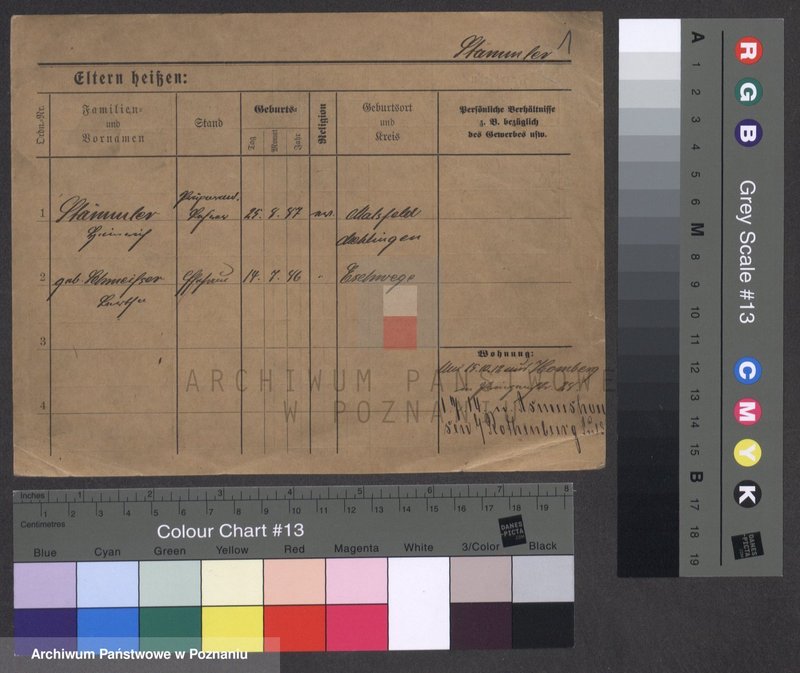 Stämmler 1
Eltern heißen:
Ordn.-Nr.
Familien- und Vornamen
Stand
Geburts-
Tag
Monat
Jahr
Religion
Geburtsort und Kreis
Persönliche Verhältnisse
z. B. bezüglich
des Gewerbes usw.
1 Stämmler Lehrer 25. 8. 87 ev. Malsfeld
Heinrich Melsungen
2 geb. Ehefrau 14. 7. 86 " Eschwege
3
Wohnung:
aus Homberg
4
Rothenburg
ARCHIWUM PAŃSTWOWE
W POZNANIU
Inches 1 2 3 4 5 6 7 8
1 2 3 4 5 6 7 8 9 10 11 12 13 14 15 16 17 18 19
Centimetres
Colour Chart #13
DANES
PICTA
Blue Cyan Green Yellow Red Magenta White 3/Color Black
Archiwum Państwowe w Poznaniu
A 1 2 3 4 5 6 M 8 9 10 11 12 13 14 15 B 17 18 19
R G B
Grey Scale #13
C M Y K
DANES
PICTA